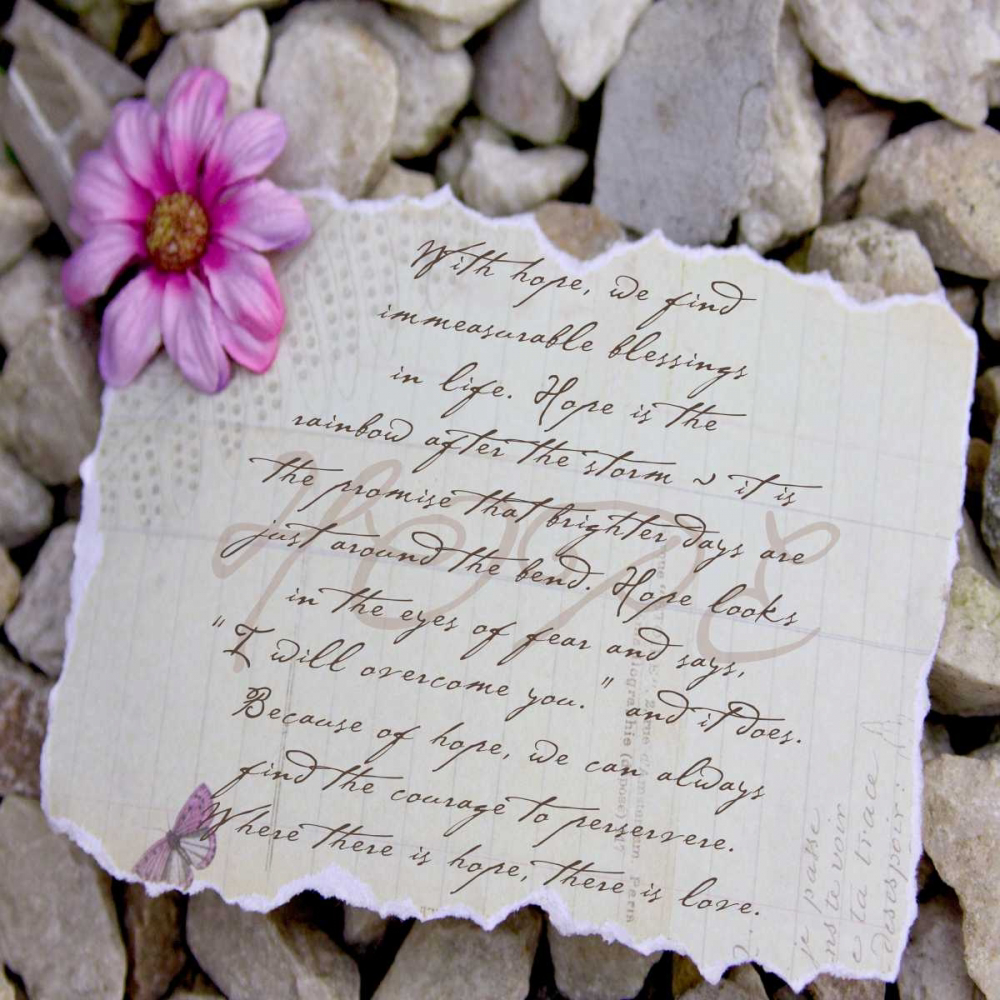 With hope, we find
immeasurable blessings
in life. Hope is the
rainbow after the storm ~ it is
the promise that brighter days are
just around the bend. Hope looks
in the eyes of fear and says,
"I will overcome you." and it does.
Because of hope, we can always
find the courage to perservere.
Where there is hope, there is love.
Hope
je passe
ns te voir
e ta trace
desespoir: